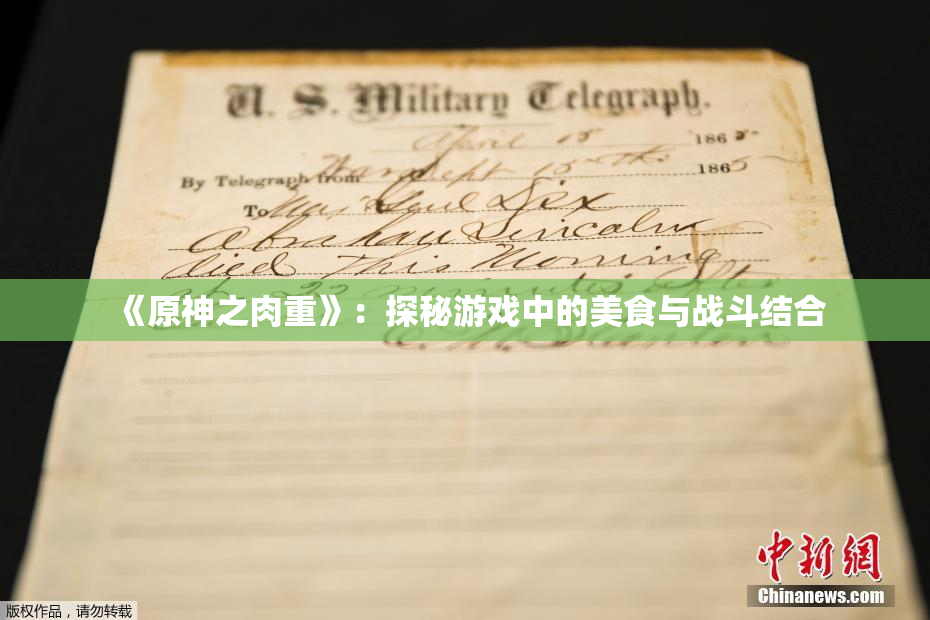 U. S. Military Telegraph.
April 15 1865
By Telegraph from War Dept 15th 1865
To Maj Genl Dix
Abraham Lincoln
died This Morning
at 22 minutes after
《原神之肉重》：探秘游戏中的美食与战斗结合
中新网
Chinanews.com
版权作品，请勿转载